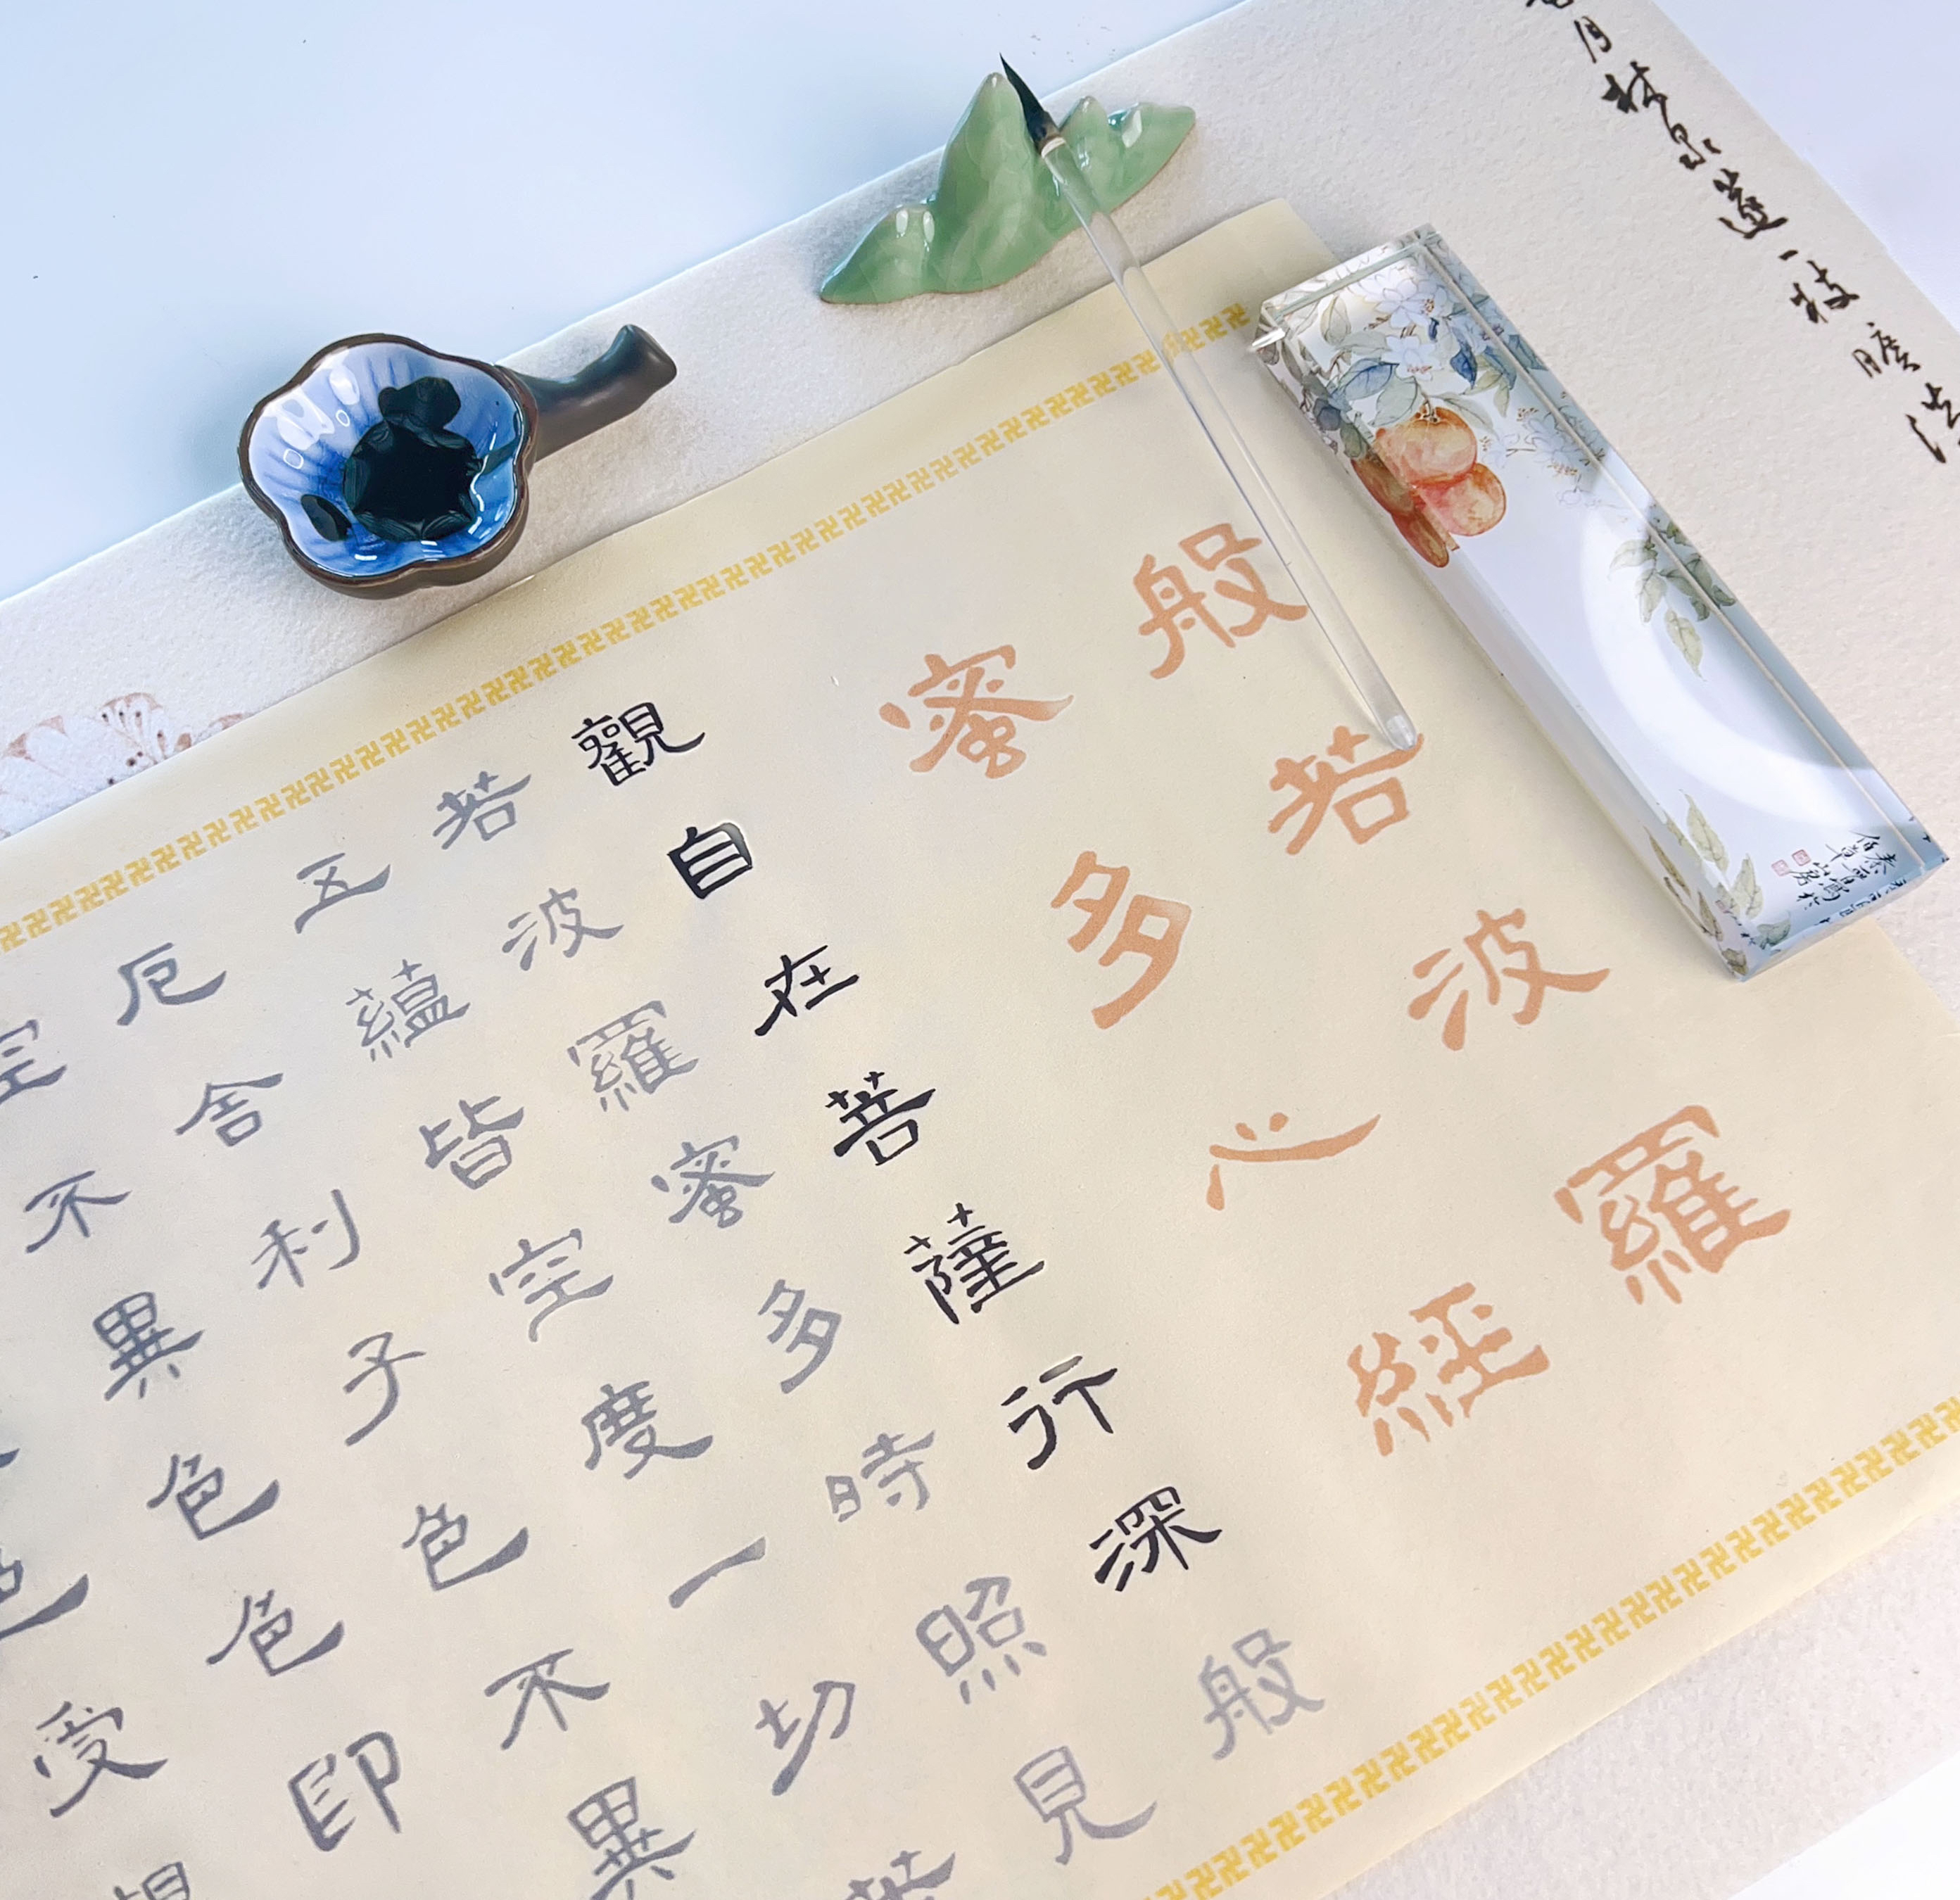 月林泉 一枝
般若波羅
蜜多心經
觀自在菩薩行深般
若波羅蜜多時照見
五蘊皆空度一切苦
厄舍利子色不異
空不異色色即
色受想